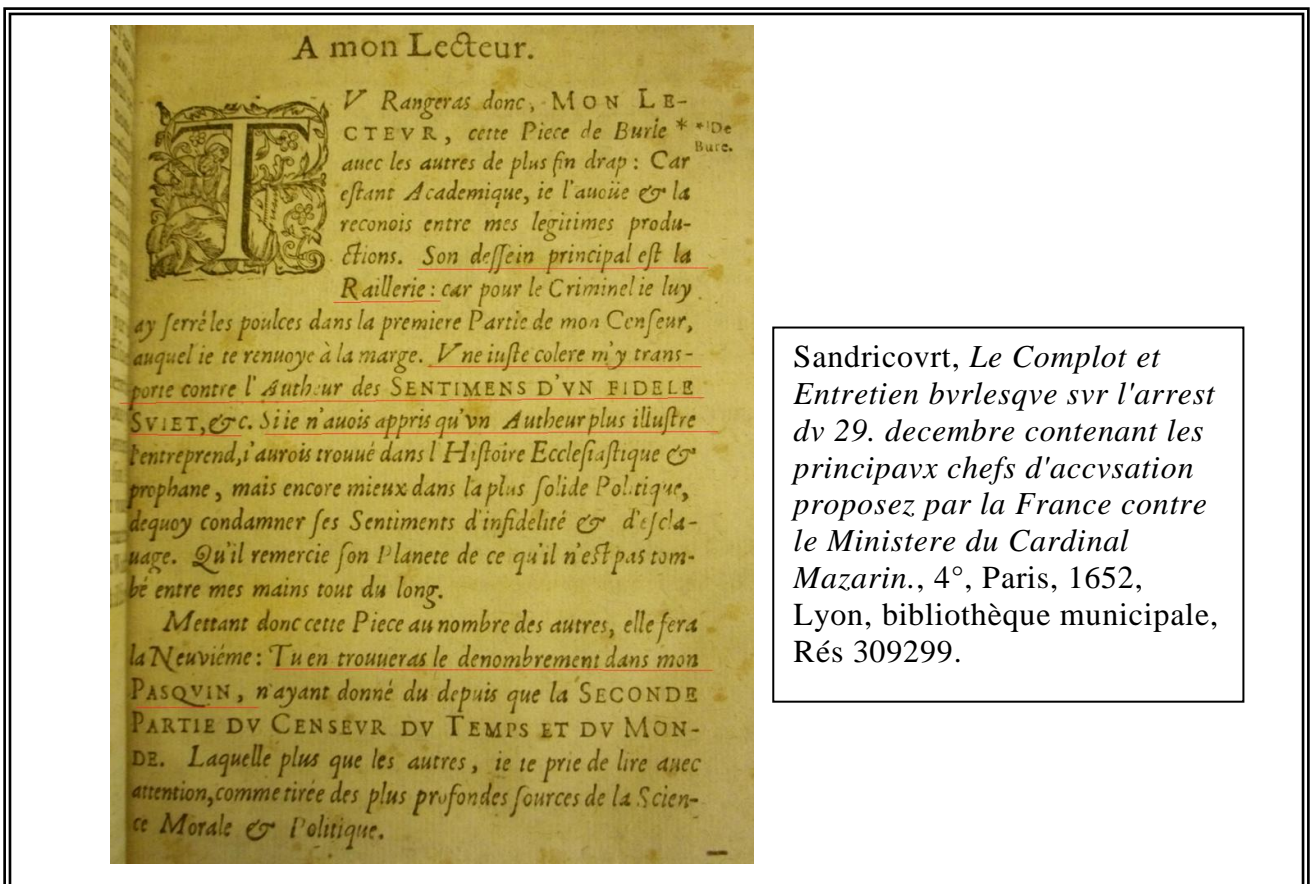 A mon Lecteur.
TV Rangeras donc, MON LE-
CTEVR, cette Piece de Burle *
*De
Bure.
auec les autres de plus fin drap : Car
estant Academique, ie l'auoüe & la
reconois entre mes legitimes produ-
ctions. Son dessein principal est la
Raillerie : car pour le Criminel ie luy
ay serré les poulces dans la premiere Partie de mon Censeur,
auquel ie te renuoye à la marge. Vne iuste colere m'y trans-
porte contre l'Autheur des SENTIMENS D'VN FIDELE
SVIET, &c. Si ie n'auois appris qu'vn Autheur plus illustre
l'entreprend, i'aurois trouué dans l'Histoire Ecclesiastique &
prophane, mais encore mieux dans la plus solide Politique,
dequoy condamner ses Sentiments d'infidelité & d'escla-
uage. Qu'il remercie son Planete de ce qu'il n'est pas tom-
bé entre mes mains tout du long.
Mettant donc cette Piece au nombre des autres, elle sera
la Neuviéme : Tu en trouueras le denombrement dans mon
PASQVIN, n'ayant donné du depuis que la SECONDE
PARTIE DV CENSEVR DV TEMPS ET DV MON-
DE. Laquelle plus que les autres, ie te prie de lire auec
attention, comme tirée des plus profondes sources de la Scien-
ce Morale & Politique.
Sandricovrt, Le Complot et
Entretien bvrlesqve svr l'arrest
dv 29. decembre contenant les
principavx chefs d'accvsation
proposez par la France contre
le Ministere du Cardinal
Mazarin., 4°, Paris, 1652,
Lyon, bibliothèque municipale,
Rés 309299.